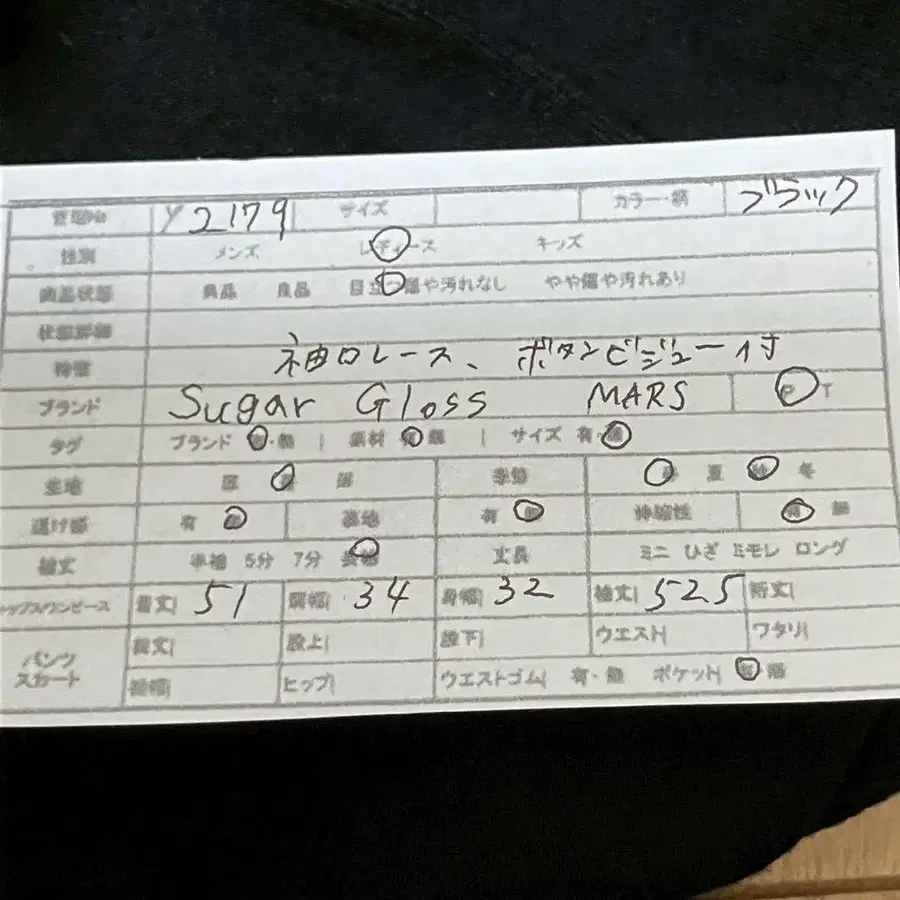 Y2179 サイズ カラー・柄 ブラック
性別 メンズ レディース キッズ
商品状態 美品 良品 目立つ傷や汚れなし やや傷や汚れあり
状態詳細
特徴 袖口レース、ボタンビジュー付
ブランド Sugar Gloss MARS P T
タグ ブランド 有・無 | 素材 有 無 | サイズ 有・無
生地 厚 薄 季節 春 夏 秋 冬
透け感 有 無 裏地 有 無 伸縮性 有 無
袖丈 半袖 5分 7分 長袖 丈長 ミニ ひざ ミモレ ロング
トップスワンピース 着丈| 51 肩幅| 34 身幅| 32 袖丈| 52.5 裄丈|
パンツ スカート 総丈| 股上| 股下| ウエスト| ワタリ|
裾幅| ヒップ| ウエストゴム| 有・無 ポケット| 有 無